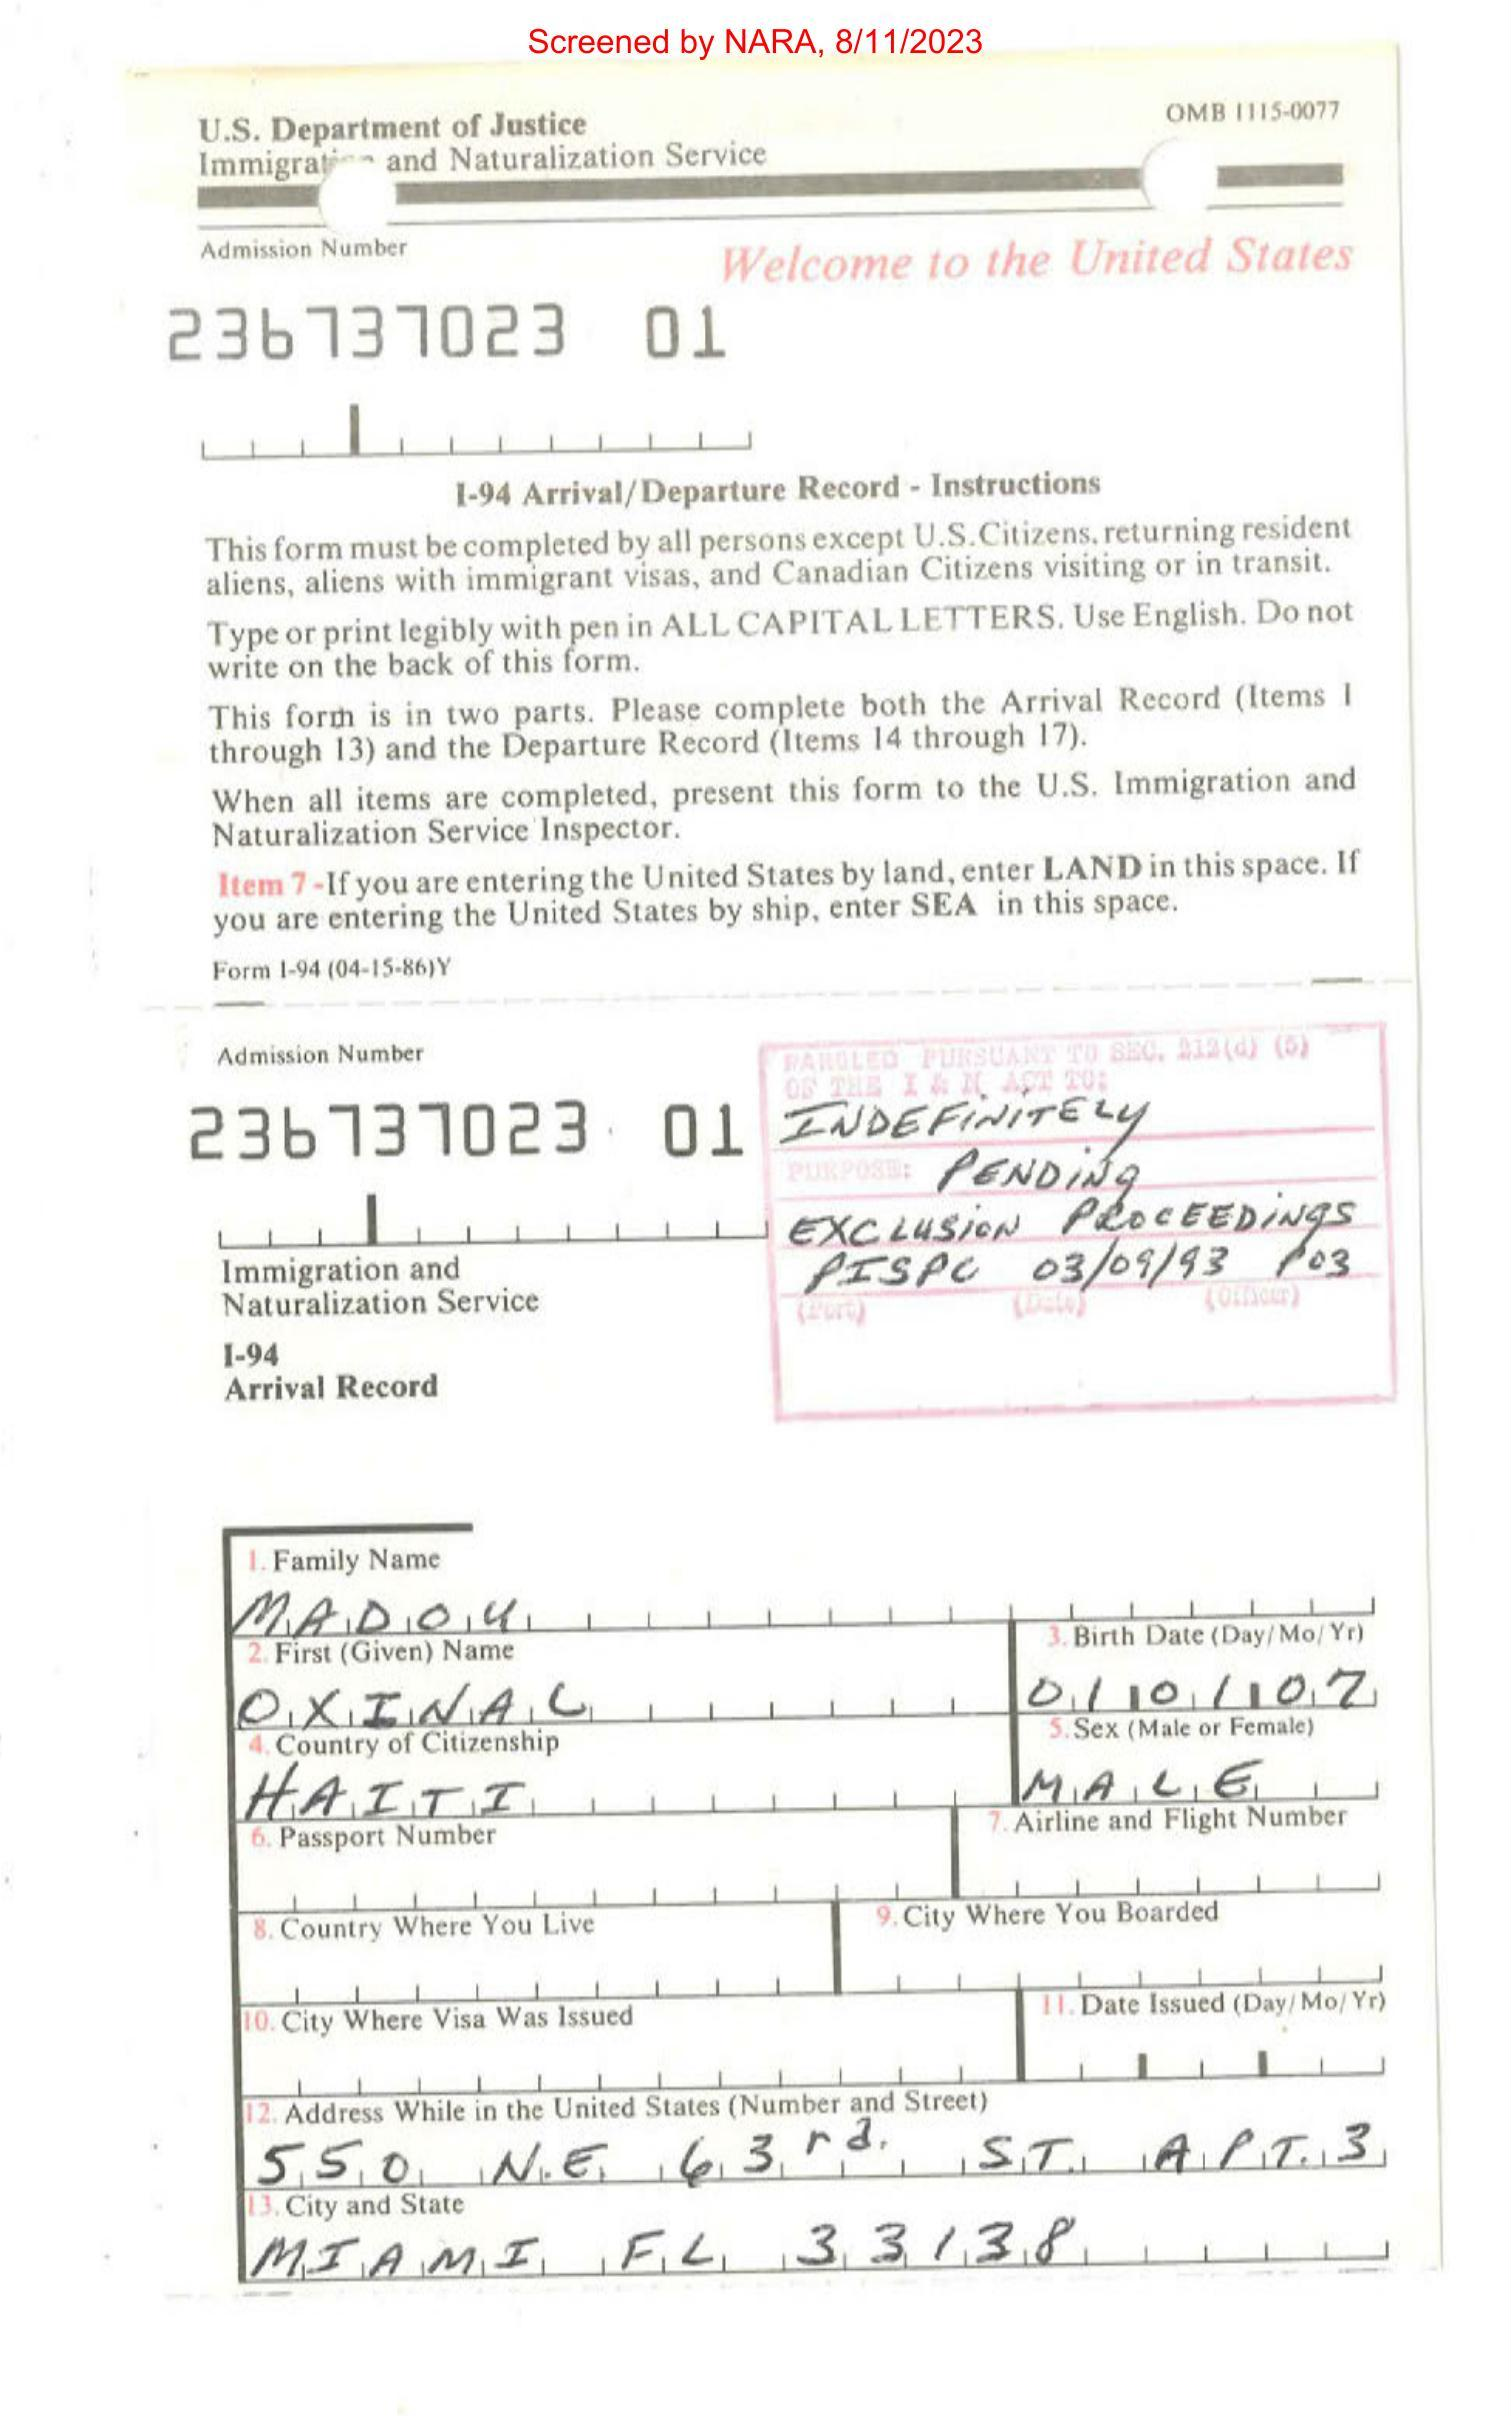 Screened by NARA, 8/11/2023
U.S. Department of Justice
OMB 1115-0077
Immigrat and Naturalization Service
Admission Number
Welcome to the United States
236737023 01
I-94 Arrival/Departure Record - Instructions
This form must be completed by all persons except U.S.Citizens, returning resident
aliens, aliens with immigrant visas, and Canadian Citizens visiting or in transit.
Type or print legibly with pen in ALL CAPITAL LETTERS. Use English. Do not
write on the back of this form.
This form is in two parts. Please complete both the Arrival Record (Items 1
through 13) and the Departure Record (Items 14 through 17).
When all items are completed, present this form to the U.S. Immigration and
Naturalization Service Inspector.
Item 7 -If you are entering the United States by land, enter LAND in this space. If
you are entering the United States by ship, enter SEA in this space.
Form I-94 (04-15-86)Y
Admission Number
236737023 01
PAROLED PURSUANT TO SEC. 212(d) (5)
OF THE I & N ACT TO:
INDEFINITELY
PURPOSE: PENDING
EXCLUSION PROCEEDINGS
PISPC 03/09/93 P03
(Port) (Date) (Officer)
Immigration and
Naturalization Service
I-94
Arrival Record
1. Family Name
MADOU
2. First (Given) Name
3. Birth Date (Day/Mo/Yr)
OXINAL
01 01 07
4. Country of Citizenship
5. Sex (Male or Female)
HAITI
MALE
6. Passport Number
7. Airline and Flight Number
8. Country Where You Live
9. City Where You Boarded
10. City Where Visa Was Issued
11. Date Issued (Day/Mo/Yr)
12. Address While in the United States (Number and Street)
550 N.E. 63rd. ST. APT. 3
13. City and State
MIAMI FL 33138